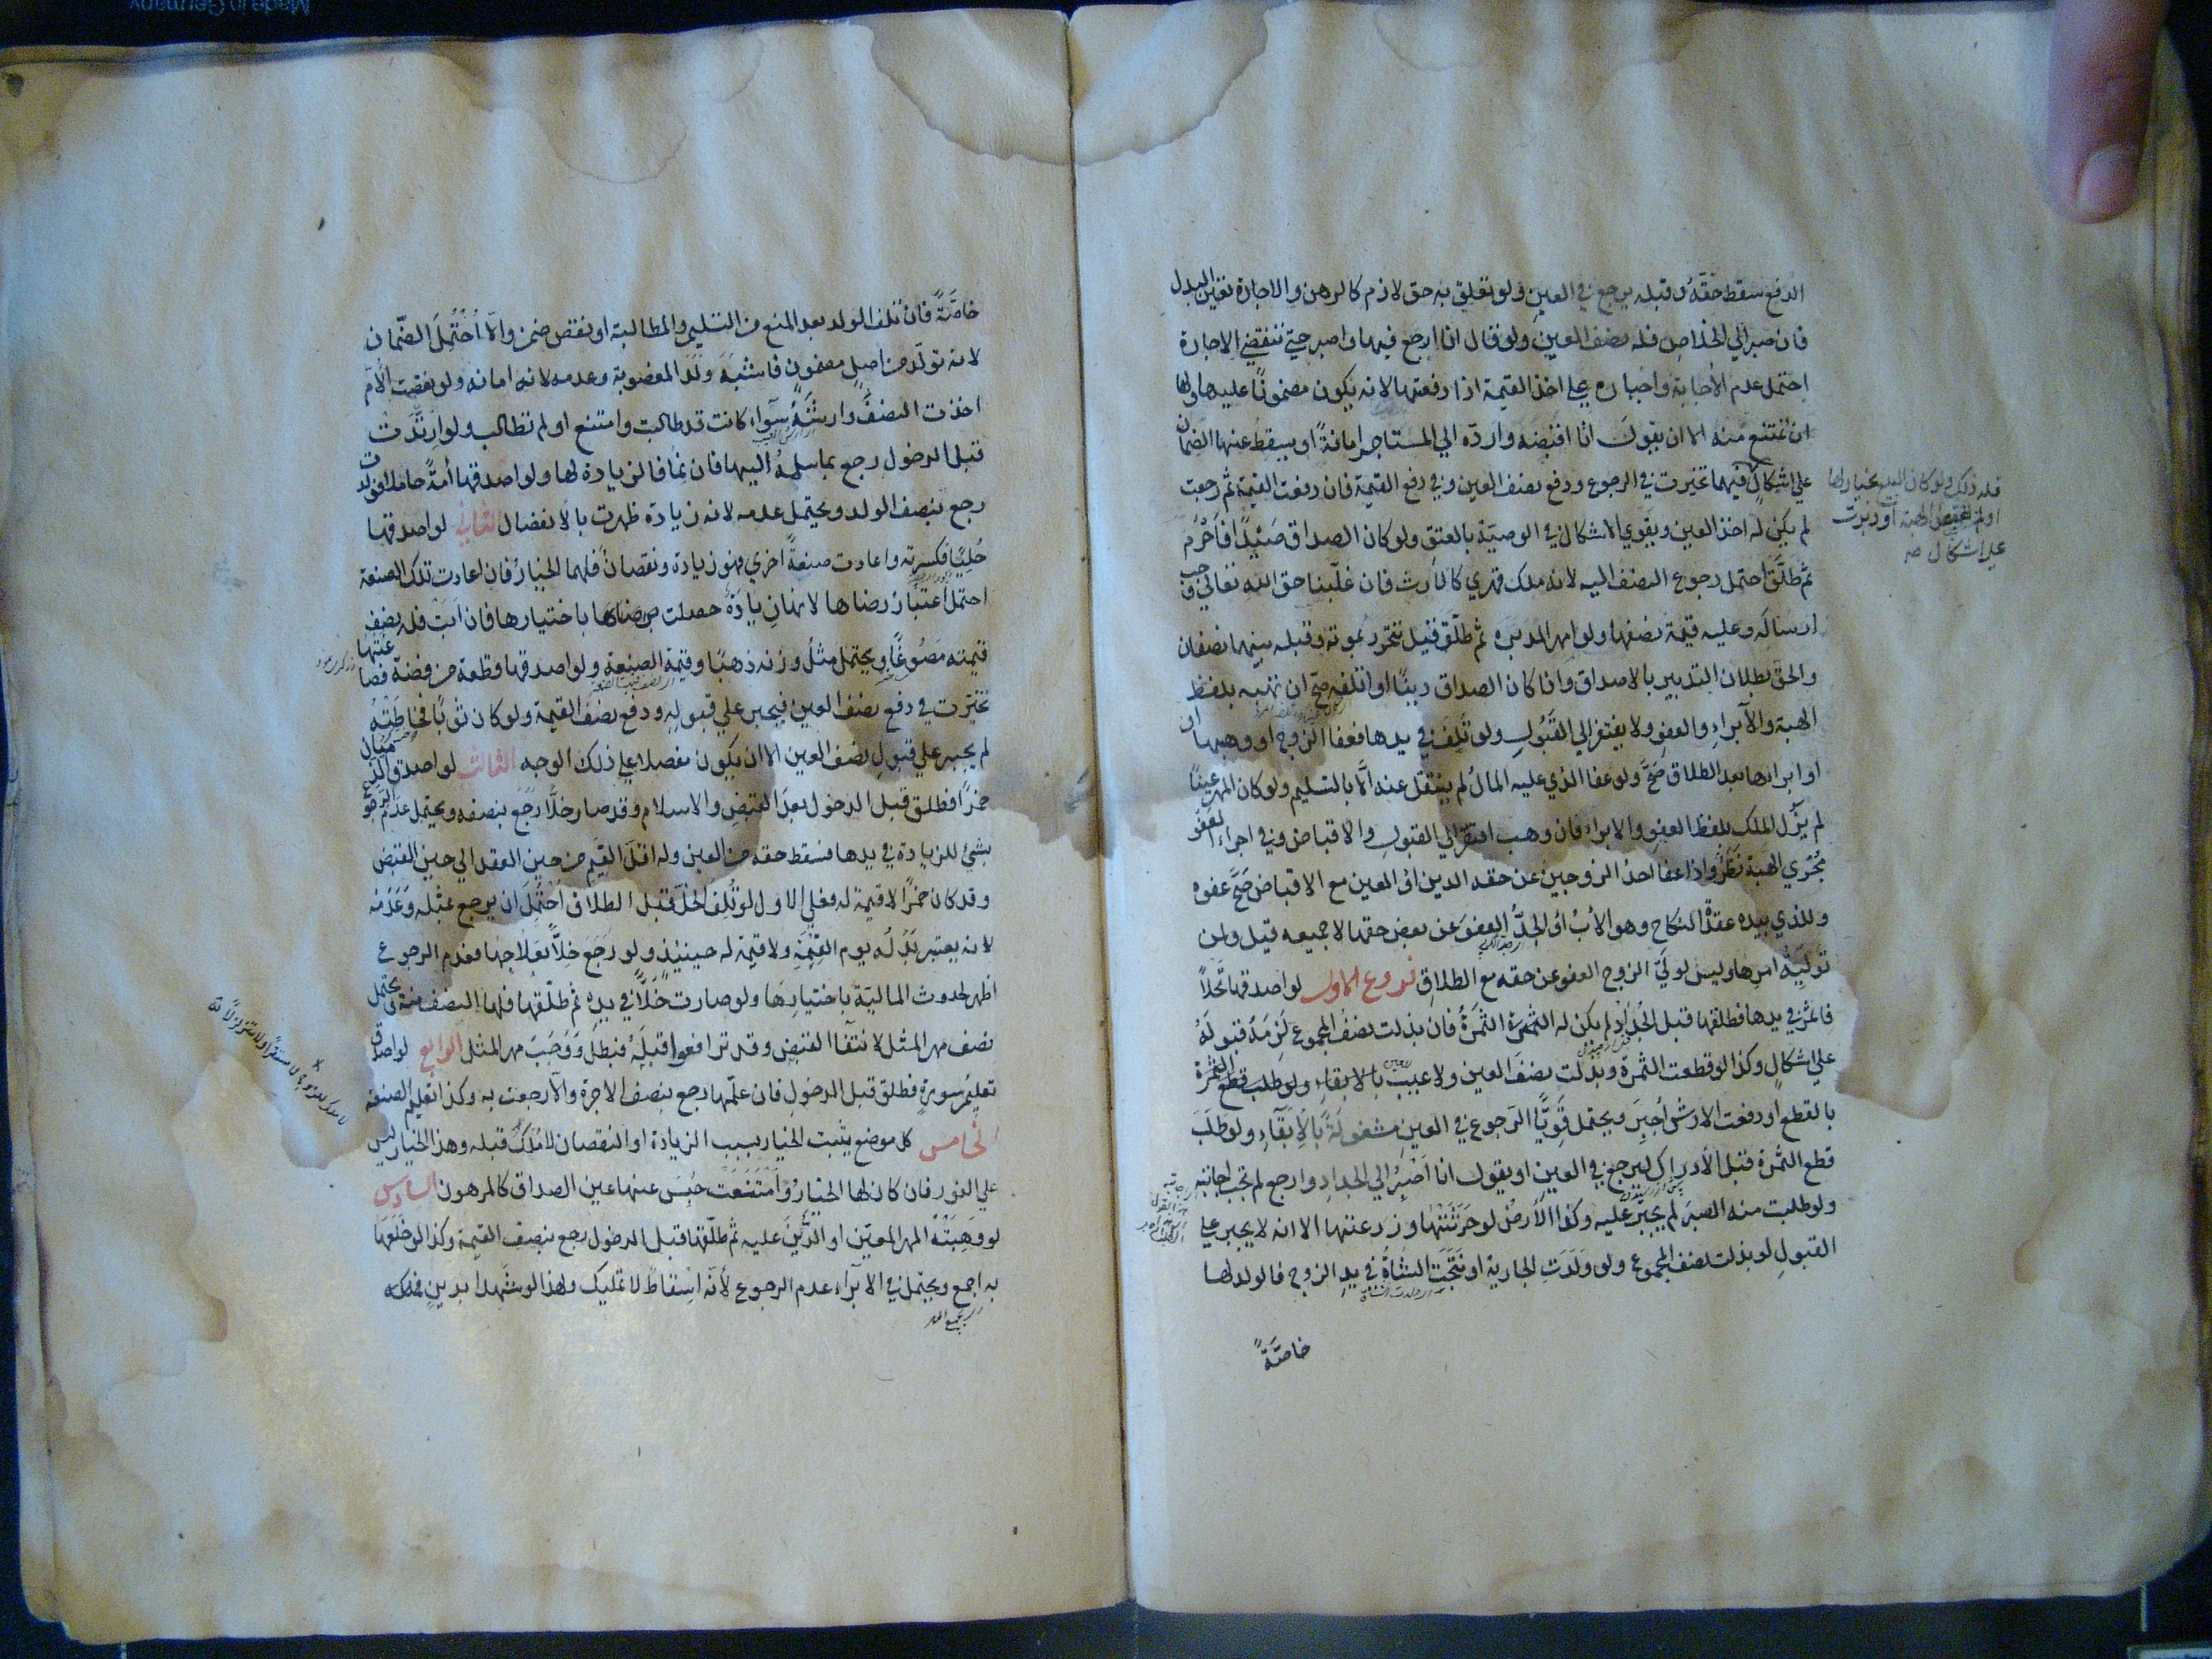 الدفع سقط حقه وقبله يرجع في العين ولو تعلق به حق لازم كالرهن والاجارة تعين البدل
فان صبر الي الخلاص فله نصف العين ولو قال انا ارجع فيها واصبر حتي تنقضي الاجارة
احتمل عدم الأجابة واجباره علي اخذ القيمة اذا دفعتها لانه يكون مضمونًا عليها ولها
ان تمتنع منه الا ان يقول انا اقبضه واردّه الي المستاجر امانةً او يسقط عنها الضمان
علي اشكالٍ فيهما تخيرت في الرجوع ودفع نصف العين وفي دفع القيمة فان دفعت القيمة ثم رجعت
لم يكن له اخذ العين ويقوي الاشكال في الوصيّة بالعتق ولو كان الصداق صَيْدًا فاَحْرَمَ
ثم طَلَّقَ احتمل رجوع النصف اليه لانه ملك قهري كالأرث فان غلّبنا حق الله تعالي وجب
ارساله وعليه قيمة نصفها ولو امهر المدبرة ثم طلّق قيل تتحرر بموته وقبله بينهما نصفان
والحق بطلان التدبير بالاصداق واذا كان الصداق دينًا او اتلفه صح ان تهبه بلفظ
الهبة والآبراءِ والعفوِ ولا يفتقر الي القَبُولِ ولو تلف في يدها فعفا الزوج او وهبها او
او ابراها بعد الطلاق صَحَّ ولو عفا الذي عليه المالُ لم ينتقل عنه الّا بالتسليم ولو كان المهر عينًا
لم يَزُل الملك بلفظ العفوِ والابراء فان وهب افتقر الي القبولِ والاقباض وفي اجراء العفو
مُجْري الهبة نَظَرٌ واذا عفا احدُ الزوجين عن حقه الدين او العين مع الاقباض صَحَّ عفوه
وللذي بيده عقدةُ النكاح وهو الأبُ أو الجدُّ العفوَ عن بعض حقها لا جميعه قيل ولمن
تولّيهُ امرها وليس لوليّ الزوج العفو عن حقه مع الطلاقِ فروع الاول لو اصدقها نَخْلًا
فاثمر في يدها فطلقها قبل الجُذاذِ لم يكن له الثمرة فان بذلت نصف المجموع لَزِمَهُ قبولُهُ
علي اشكالٍ وكذا لو قطعت الثمرة وبذلت نصفَ العين ولا عيب بالابقاءِ ولو طلب قطع الثمرة
بالقطع او دفعت الارش أُجبِرَ ويحتمل قَويًّا الرجوع في العينِ مشغولةً بالأِبقآءِ ولو طَلَبَ
قطع الثمرة قبل الأدراك ليرجع في العين او يقول انا اَصْبِرُ الي الجذاذِ وارجع لم تجب اجابته
ولو طلبت منه الصبر لم يجبر عليه وكذا الأرضُ لو حَرَثَتْها وزرعتها الا انه لا يجبر علي
القبولِ لو بذلت نصف المجموع ولو وَلَدَتِ الجارية او نَتَجَتِ الشاةُ في يد الزوج فالولد لها
خاصّةً
فله ذلك ولو كان البيع بخيار لها
علي اشكال صه
خاصَّةً فان تلف الولد بعد المنع من التسليم والمطالبة او نقص ضمن والّا اُحْتُمِلَ الضمان
لانه تولّد من اصلٍ مضمونٍ فاشْبَهَ وَلَدَ المغصوبة وعدمه لانه امانه ولو نقصت الأمّ
اخذت النصفَ وارشَهُ سوآء كانت قد طالبت وامتنع او لم تطالب ولو ارتَدَّتْ
قبل الدخول رجع بما سلمه اليها فان نما فالزيادة لها ولو اصدقها أمةً حاملا فولدت
رجع بنصف الولد ويحتمل عدمه لانه زيادة ظهرت بالانفصال الثاني لو اصدقها
حُلِيًّا فكسرته واعادت صنعةً اخري فهو زيادة ونقصانٌ فلهما الخيار فان اعادت تلك الصنعة
احتمل اعتبارُ رضاها لانها زيادَةٌ حصلت باختيارها فان اَبَتْ فله نصف
قيمته مَصُوغًا ويحتمل مثلُ وزنه ذهبًا وقيمة الصنعة ولو اصدقها قطعة من فضة فصاغتها
تخيرت في دفع نصف العين فيجبر علي قبوله ودفع نصف القيمة ولو كان ثوبًا فخاطته
لم يجبر علي قبولِ نصف العين الا ان يكون مفصلا علي ذلك الوجه الثالث لو اصدق الذمي
خمرًا فطلق قبل الدخول بعد القبضِ والاسلام وقد صار خلًّا رجع بنصفه ويحتمل عدم الرجوع
بشئ للزيادة في يدها فسقط حقه من العين وله اقلُ القيم من حين العقد الي حين القبض
وقد كان خمرًا لا قيمة له فعلي الاول لو تُلِفَ الخلُّ قبل الطلاق اُحْتُمِلَ ان يرجع بمثله وعَدَمُهُ
لانه يعتبر بَدَلُه يوم القبض ولا قيمة له حينئِذٍ ولو رَجَعَ خلًّا بعلاجها فعدم الرجوع
اظهر لحدوث الماليّة باختيارِها ولو صارت خَلًّا في يده ثم طلّقها فلها النصف منه ويحتمل
نصف مهر المثل لانتفآا القبض وقد ترافعوا قبلَهُ فبَطلَ وَوَجَبَ مهر المثل الرابع لو اصدق
تعليم سورةٍ فطلق قبل الدخولِ فان علّمها رجع بنصف الاجرة والّا رجعت به وكذا تعليمُ الصنعة
الخامس كل موضع يثبت الخيار بسبب الزيادة او النقصان لا مُلْكَ قبله وهذا الخيار ليس
علي الفور فان كان لها الخيارُ وامتنعت حُبِسَ عنها عين الصداق كالمرهون السادس
لو وهبته المهر المعيّن او الدَّيْنَ عليه ثم طلّقها قبل الدخول رجع بنصف القيمة وكذا لو خَلَعَها
به اجمع ويحتمل في الابرآء عدم الرجوع لأنّه اسقاطٌ لا تمليك ولهذا لو شَهِدا بدينٍ فملكه